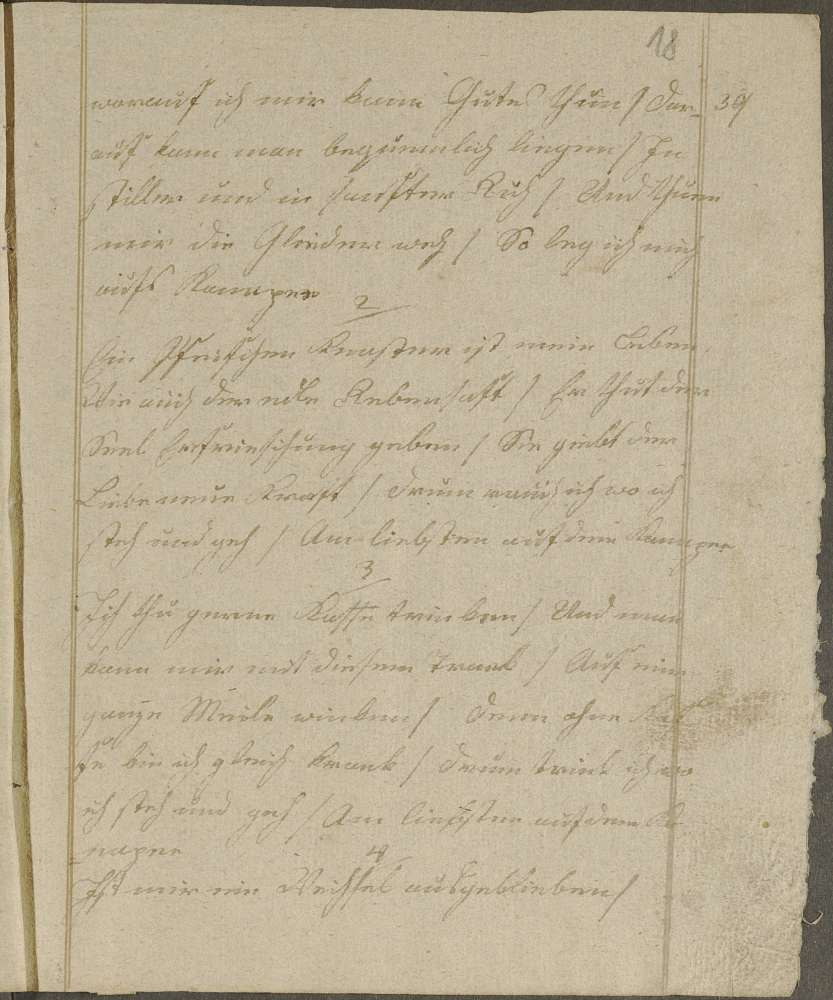 18
worauf ich mir kann Gutes thun / Dar- 39
auf kann man bequemlich liegen / In
stiller und in sanfter Ruh / Und thun
mir die Glieder weh / So leg ich mich
aufs Kanapee
2
Ein Pfeifchen Knaster ist mein Leben
Wie auch der edle Rebensaft / Er thut der
Seel Erfrieschung geben / Sie giebt der
Liebe neue Kraft / drum rauch ich wo ich
steh und geh / Am liebsten auf dem Kanapee
3
Ich thu gerne Kaffe trinken / Und man
kann mir mit diesem Trank / Auf eine
ganze Meile winken / denn ohne Kaf
fe bin ich gleich krank / drum trink ich wo
ich steh und geh / Am liebsten auf dem Ka
napee
4
Ist mir ein Wechsel ausgeblieben /